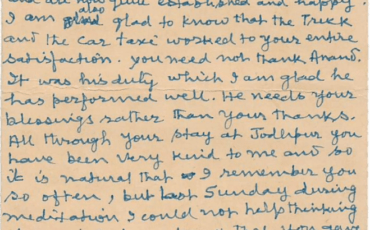 and are now quite established and happy.
I am also glad to know that the Truck
and the car taxi worked to your entire
satisfaction. you need not thank Anand.
It was his duty which I am glad he
has performed well. He needs your
blessings rather than your thanks.
All through your stay at Jodhpur you
have been very kind to me and so
it is natural that I remember you
so often, but last Sunday during
meditation I could not help thinking